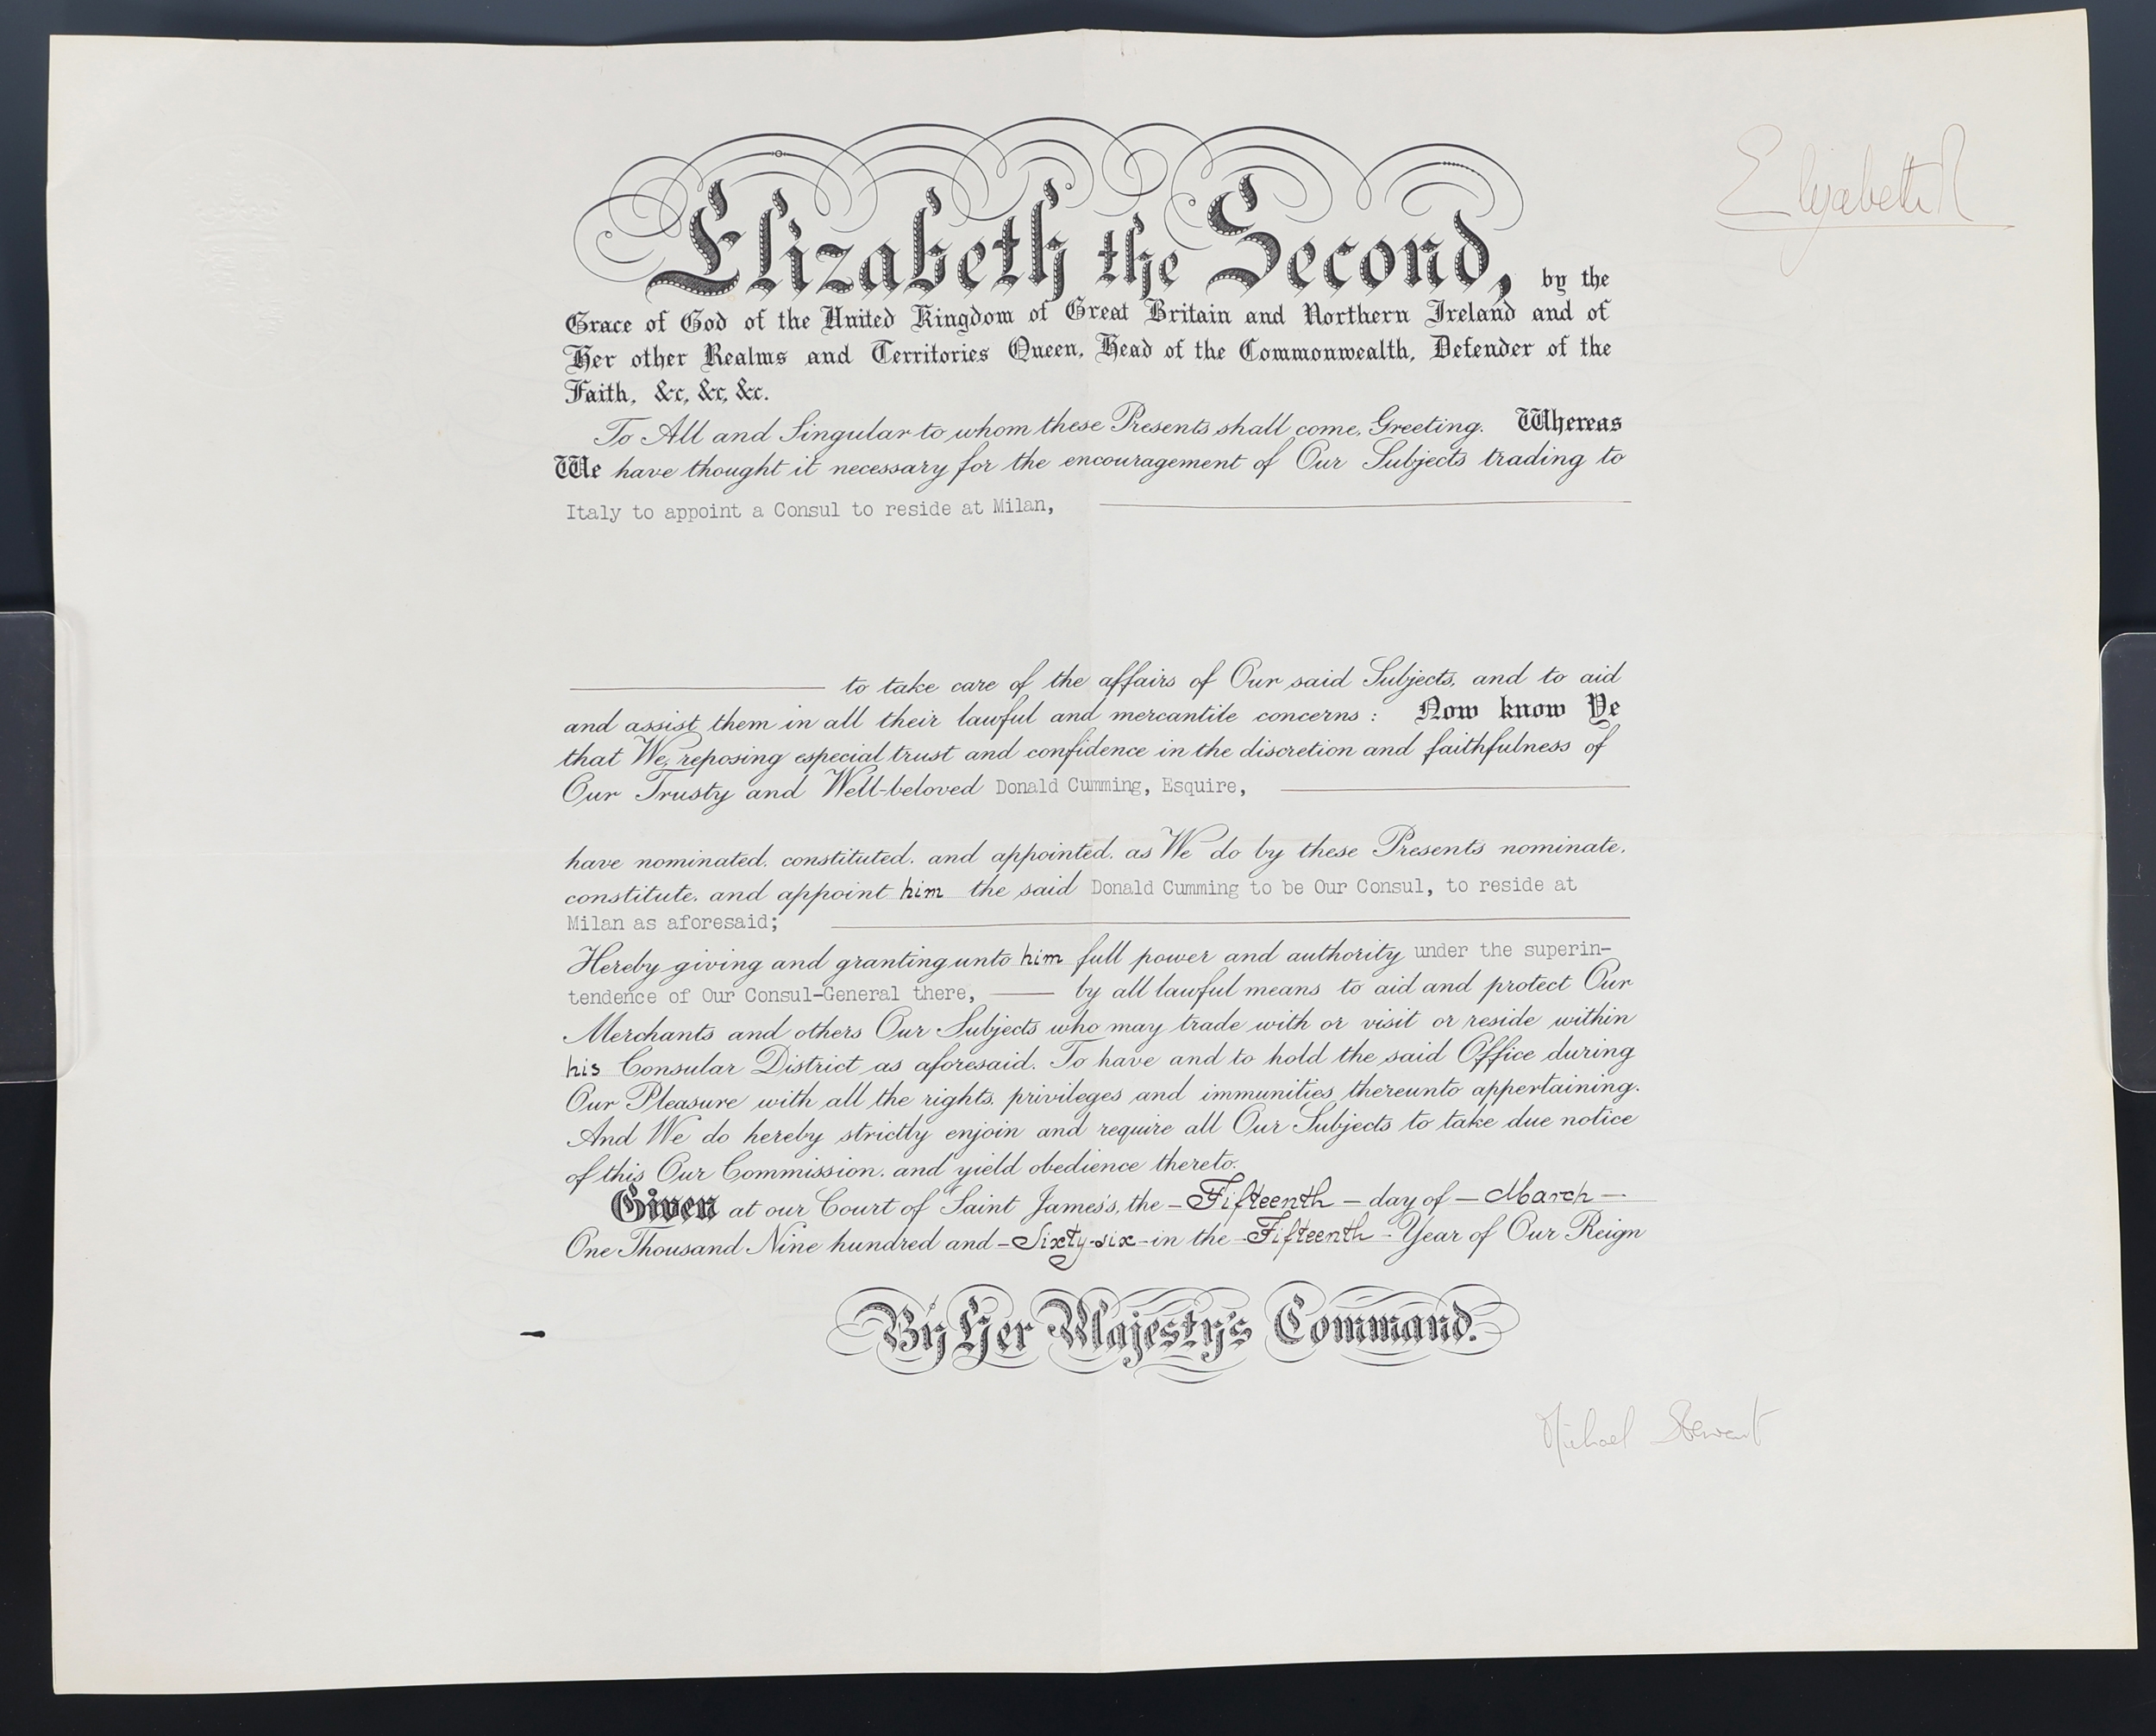 Elizabeth R
Elizabeth the Second, by the
Grace of God of the United Kingdom of Great Britain and Northern Ireland and of
Her other Realms and Territories Queen, Head of the Commonwealth, Defender of the
Faith, &c, &c, &c.
To All and Singular to whom these Presents shall come, Greeting. Whereas
We have thought it necessary for the encouragement of Our Subjects trading to
Italy to appoint a Consul to reside at Milan,
to take care of the affairs of Our said Subjects, and to aid
and assist them in all their lawful and mercantile concerns: Now know Ye
that We, reposing especial trust and confidence in the discretion and faithfulness of
Our Trusty and Well-beloved Donald Cumming, Esquire,
have nominated, constituted, and appointed, as We do by these Presents nominate,
constitute, and appoint him the said Donald Cumming to be Our Consul, to reside at
Milan as aforesaid;
Hereby giving and granting unto him full power and authority under the superin-
tendence of Our Consul-General there, — by all lawful means to aid and protect Our
Merchants and others Our Subjects who may trade with or visit or reside within
his Consular District as aforesaid. To have and to hold the said Office during
Our Pleasure with all the rights, privileges and immunities thereunto appertaining.
And We do hereby strictly enjoin and require all Our Subjects to take due notice
of this Our Commission, and yield obedience thereto.
Given at our Court of Saint James's, the – Fifteenth – day of – March –
One Thousand Nine hundred and – Sixty-six – in the – Fifteenth – Year of Our Reign
By Her Majesty's Command.
Michael Stewart